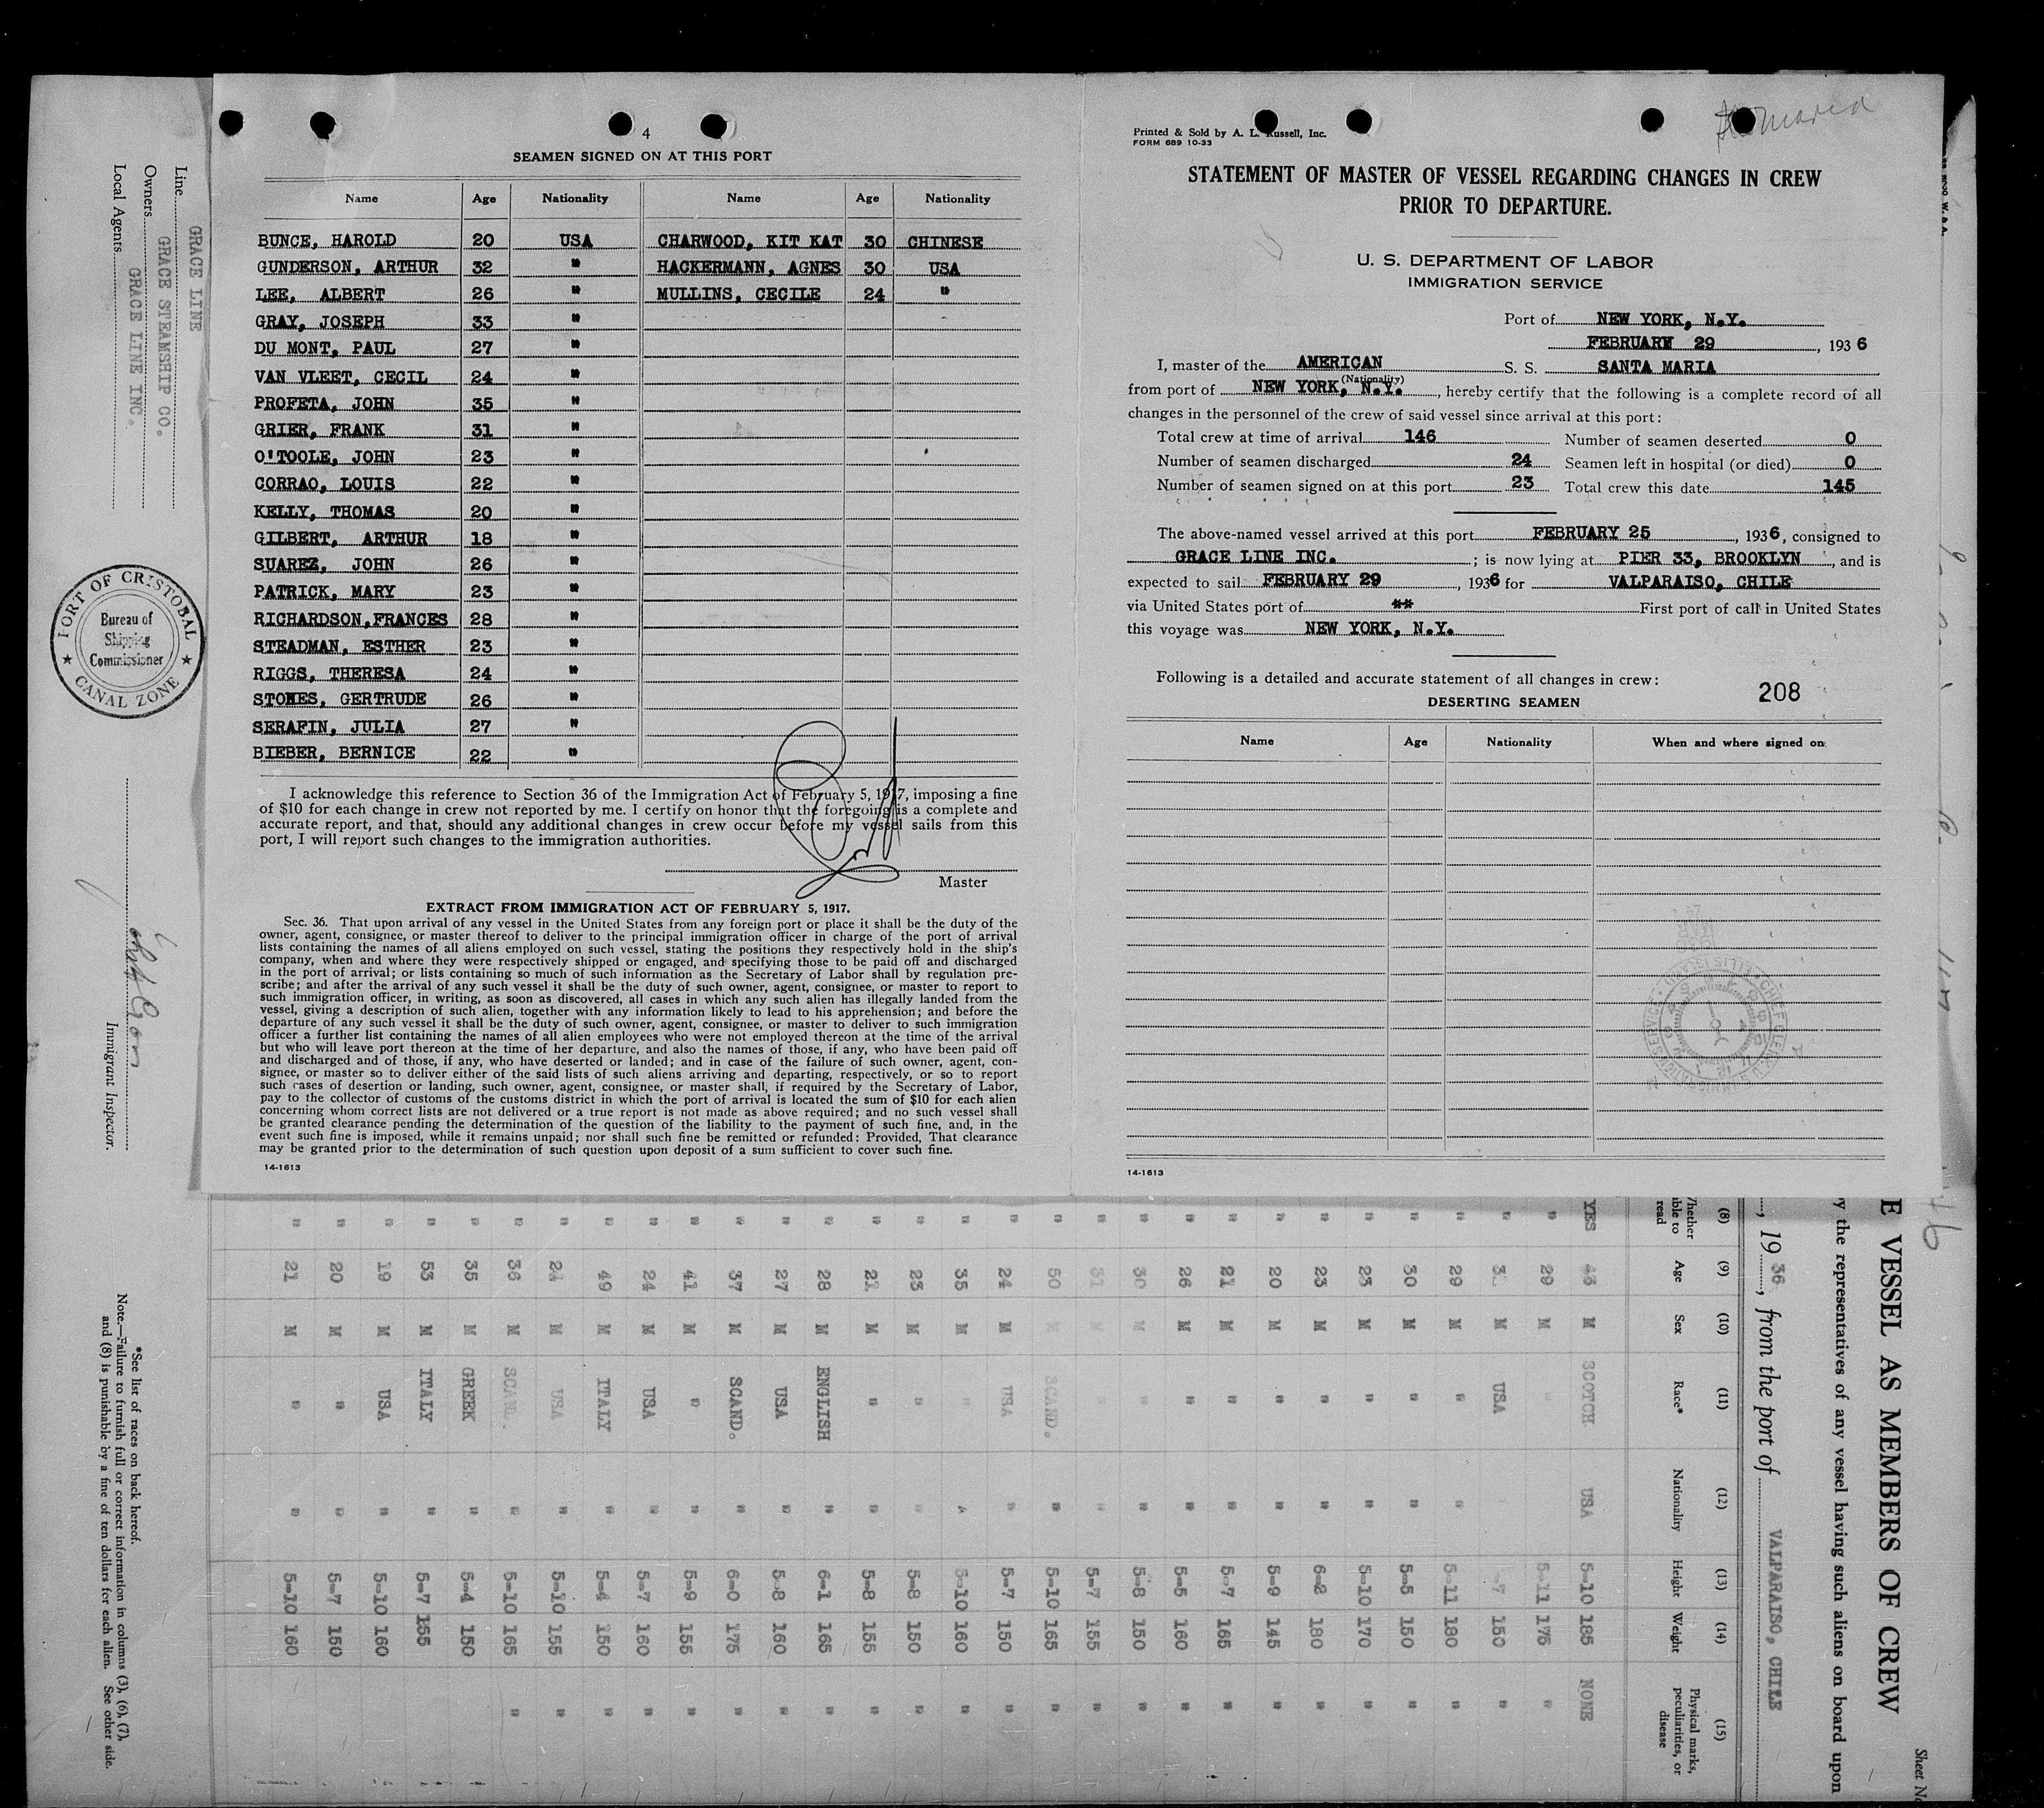 4
SEAMEN SIGNED ON AT THIS PORT
Name Age Nationality Name Age Nationality
BUNCE, HAROLD 20 USA CHARWOOD, KIT KAT 30 CHINESE
GUNDERSON, ARTHUR 32 " HACKERMANN, AGNES 30 USA
LEE, ALBERT 26 " MULLINS, CECILE 24 "
GRAY, JOSEPH 33 "
DU MONT, PAUL 27 "
VAN VLEET, CECIL 24 "
PROFETA, JOHN 35 "
GRIER, FRANK 31 "
O'TOOLE, JOHN 23 "
CORRAO, LOUIS 22 "
KELLY, THOMAS 20 "
GILBERT, ARTHUR 18 "
SUAREZ, JOHN 26 "
PATRICK, MARY 23 "
RICHARDSON, FRANCES 28 "
STEADMAN, ESTHER 23 "
RIGGS, THERESA 24 "
GERTRUDE 26 "
SERAFIN, JULIA 27 "
BIEBER, BERNICE 22 "
I acknowledge this reference to Section 36 of the Immigration Act of February 5, 1917, imposing a fine
of $10 for each change in crew not reported by me. I certify on honor that the foregoing is a complete and
accurate report, and that, should any additional changes in crew occur before my vessel sails from this
port, I will report such changes to the immigration authorities.
Master
EXTRACT FROM IMMIGRATION ACT OF FEBRUARY 5, 1917.
Sec. 36. That upon arrival of any vessel in the United States from any foreign port or place it shall be the duty of the
owner, agent, consignee, or master thereof to deliver to the principal immigration officer in charge of the port of arrival
lists containing the names of all aliens employed on such vessel, stating the positions they respectively hold in the ship's
company, when and where they were respectively shipped or engaged, and specifying those to be paid off and discharged
in the port of arrival; or lists containing so much of such information as the Secretary of Labor shall by regulation pre-
scribe; and after the arrival of any such vessel it shall be the duty of such owner, agent, consignee, or master to report to
such immigration officer, in writing, as soon as discovered, all cases in which any such alien has illegally landed from the
vessel, giving a description of such alien, together with any information likely to lead to his apprehension; and before the
departure of any such vessel it shall be the duty of such owner, agent, consignee, or master to deliver to such immigration
officer a further list containing the names of all alien employees who were not employed thereon at the time of the arrival
but who will leave port thereon at the time of her departure, and also the names of those, if any, who have been paid off
and discharged and of those, if any, who have deserted or landed; and in case of the failure of such owner, agent, con-
signee, or master so to deliver either of the said lists of such aliens arriving and departing, respectively, or so to report
such cases of desertion or landing, such owner, agent, consignee, or master shall, if required by the Secretary of Labor,
pay to the collector of customs of the customs district in which the port of arrival is located the sum of $10 for each alien
concerning whom correct lists are not delivered or a true report is not made as above required; and no such vessel shall
be granted clearance pending the determination of the question of the liability to the payment of such fine, and, in the
event such fine is imposed, while it remains unpaid; nor shall such fine be remitted or refunded: Provided, That clearance
may be granted prior to the determination of such question upon deposit of a sum sufficient to cover such fine.
14-1613
Printed & Sold by A. L. Russell, Inc.
FORM 689 10-33
STATEMENT OF MASTER OF VESSEL REGARDING CHANGES IN CREW
PRIOR TO DEPARTURE.
U. S. DEPARTMENT OF LABOR
IMMIGRATION SERVICE
Port of NEW YORK, N.Y.
FEBRUARY 29, 1936
I, master of the AMERICAN S. S. SANTA MARIA
(Nationality)
from port of NEW YORK, N.Y., hereby certify that the following is a complete record of all
changes in the personnel of the crew of said vessel since arrival at this port:
Total crew at time of arrival 146 Number of seamen deserted 0
Number of seamen discharged 24 Seamen left in hospital (or died) 0
Number of seamen signed on at this port 23 Total crew this date 145
The above-named vessel arrived at this port FEBRUARY 25, 1936, consigned to
GRACE LINE INC. ; is now lying at PIER 33, BROOKLYN, and is
expected to sail FEBRUARY 29, 1936 for VALPARAISO, CHILE
via United States port of ** First port of call in United States
this voyage was NEW YORK, N.Y.
Following is a detailed and accurate statement of all changes in crew:
208
DESERTING SEAMEN
Name Age Nationality When and where signed on
14-1613
Line GRACE LINE
Owners GRACE STEAMSHIP CO.
Local Agents GRACE LINE INC.
PORT OF CRISTOBAL
Bureau of
Shipping
Commissioner
CANAL ZONE
Immigrant Inspector.
*See list of races on back hereof.
Note.—Failure to furnish full or correct information in columns (3), (6), (7),
and (8) is punishable by a fine of ten dollars for each alien. See other side.
Sheet No
E VESSEL AS MEMBERS OF CREW
by the representatives of any vessel having such aliens on board upon
, 1936, from the port of VALPARAISO, CHILE
(8) (9) (10) (11) (12) (13) (14) (15)
Whether able to read Age Sex Race* Nationality Height Weight Physical marks, peculiarities, or disease
YES 43 M SCOTCH USA 5-10 185 NONE
" 29 M " 5-11 175 "
" M USA 150 "
" 29 M " " 5-11 180 "
" 30 M " " 5-5 150 "
" 23 M " " 5-10 170 "
" 23 M " " 6-2 180 "
" 20 M " " 5-9 145 "
" 21 M " " 5-7 165 "
" 26 M " " 5-5 160 "
" 30 M " " 5-8 150 "
" 31 M " " 5-7 155 "
" 50 M SCAND. " 5-10 165 "
" 24 M USA " 5-7 150 "
" 35 M " 5-10 160 "
" 23 M " " 5-8 150 "
" M " " 5-8 155 "
" 28 M ENGLISH " 6-1 165 "
" 27 M USA " 5-8 160 "
" 37 M SCAND. " 6-0 175 "
" 41 M " " 5-9 155 "
" 24 M USA " 5-7 160 "
" 49 M ITALY " 5-4 150 "
" M USA " 5-10 155 "
" 36 M SCAND. " 5-10 165 "
" 35 M GREEK " 5-4 150
" 53 M ITALY " 5-7 155
" 19 M USA " 5-10 160
" 20 M " " 5-7 150
" 21 M " " 5-10 160